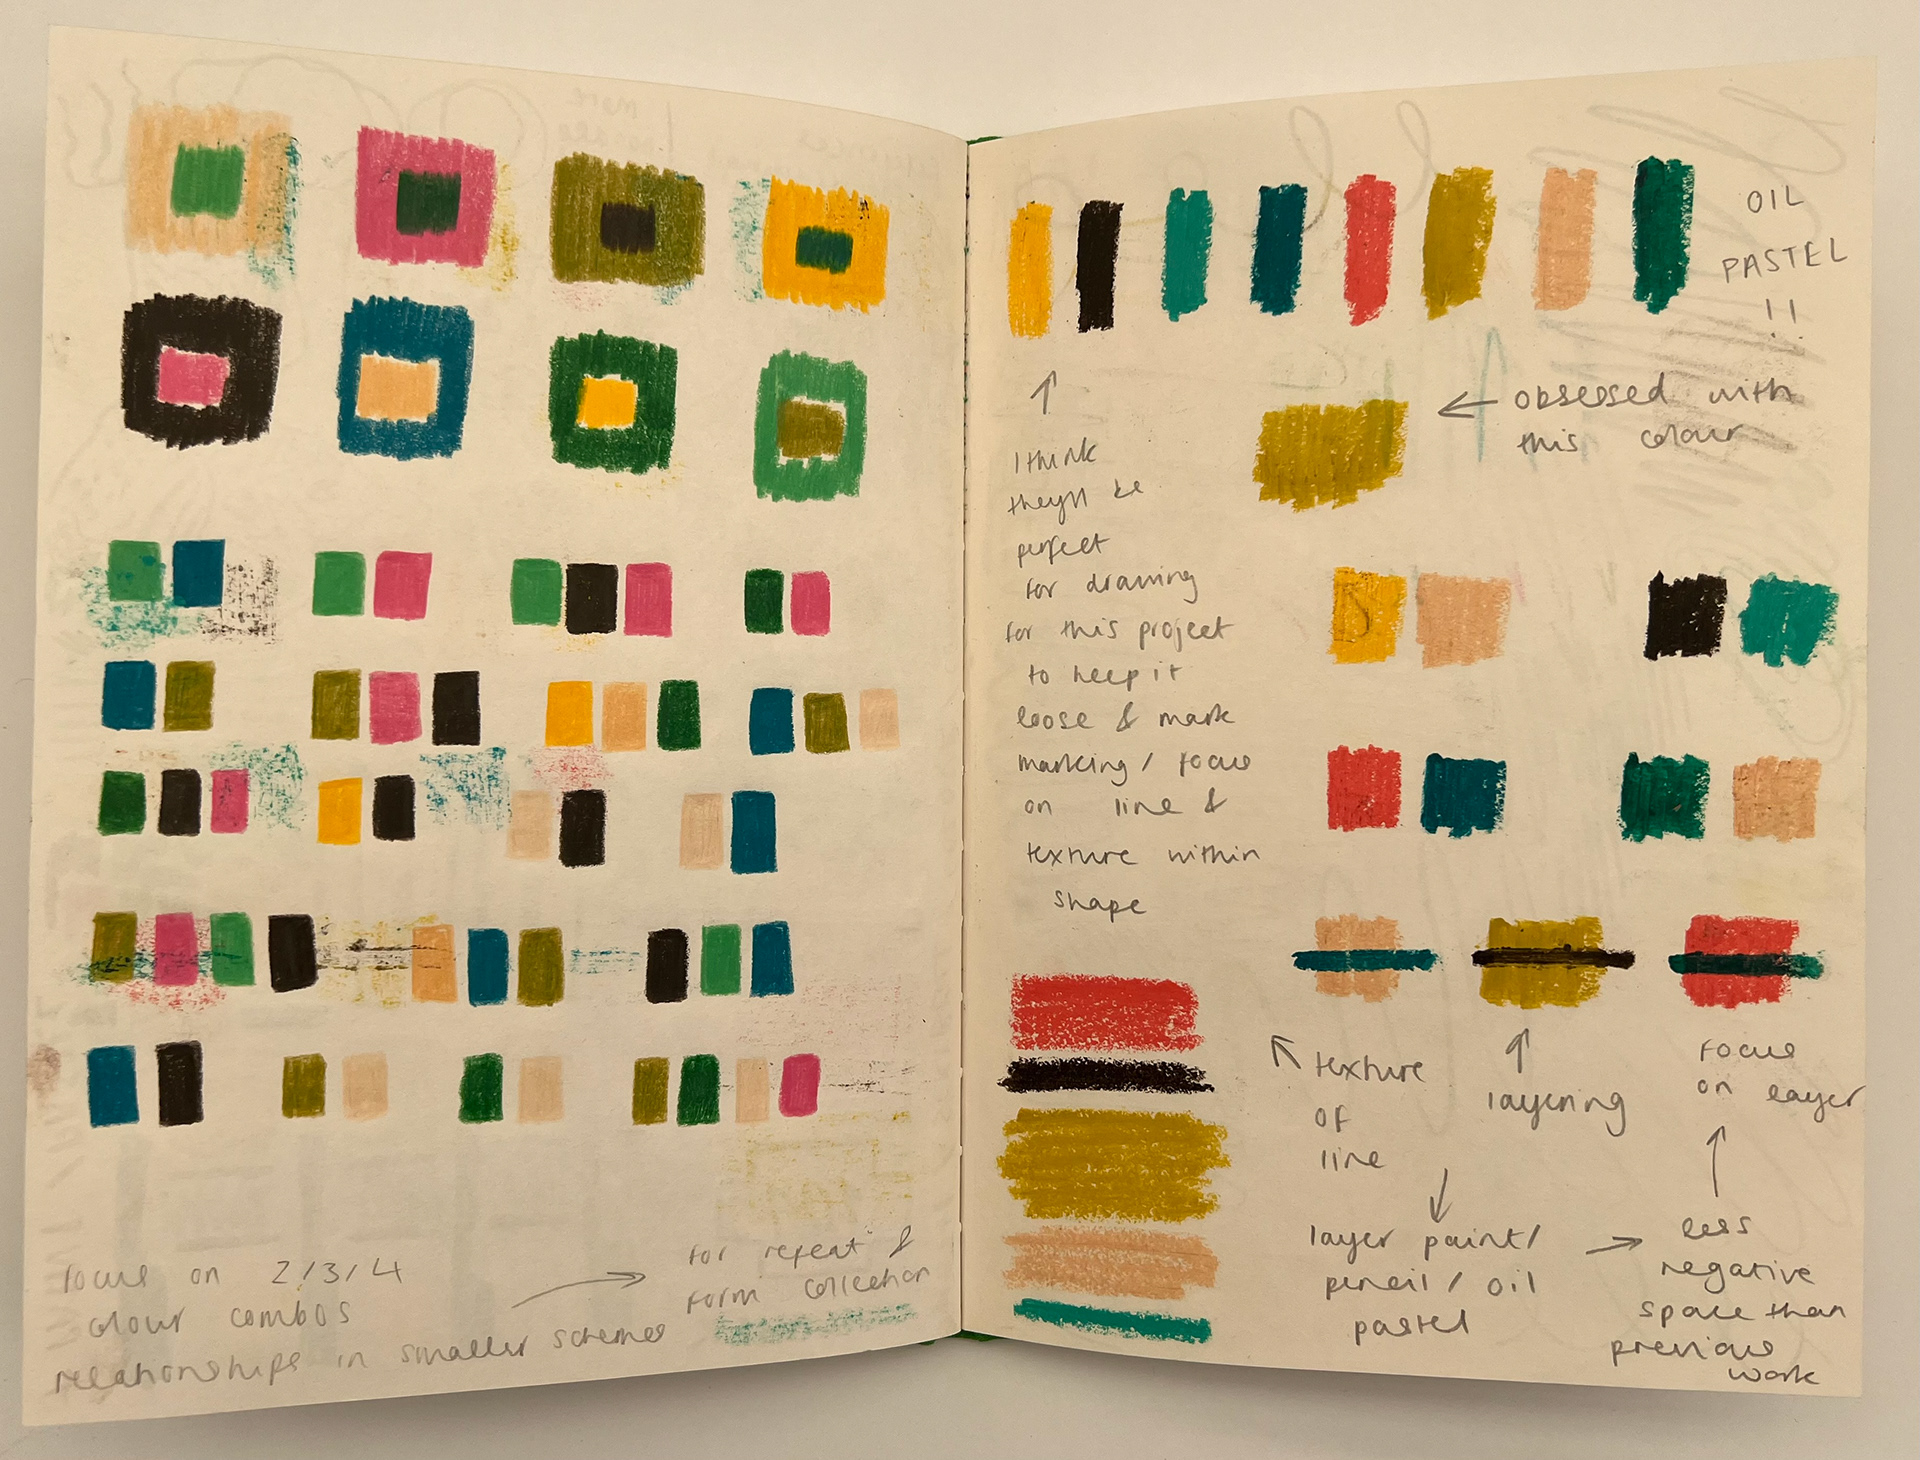 focus on 2/3/4
colour combos
relationships in smaller schemes
for repeat &
form collection
OIL
PASTEL
!!
obsessed with
this colour
I think
they'll be
perfect
for drawing
for this project
to keep it
loose & mark
marking / focus
on line &
texture within
shape
texture
of
line
layering
focus
on layer
layer paint/
pencil / oil
pastel
less
negative
space than
previous
work